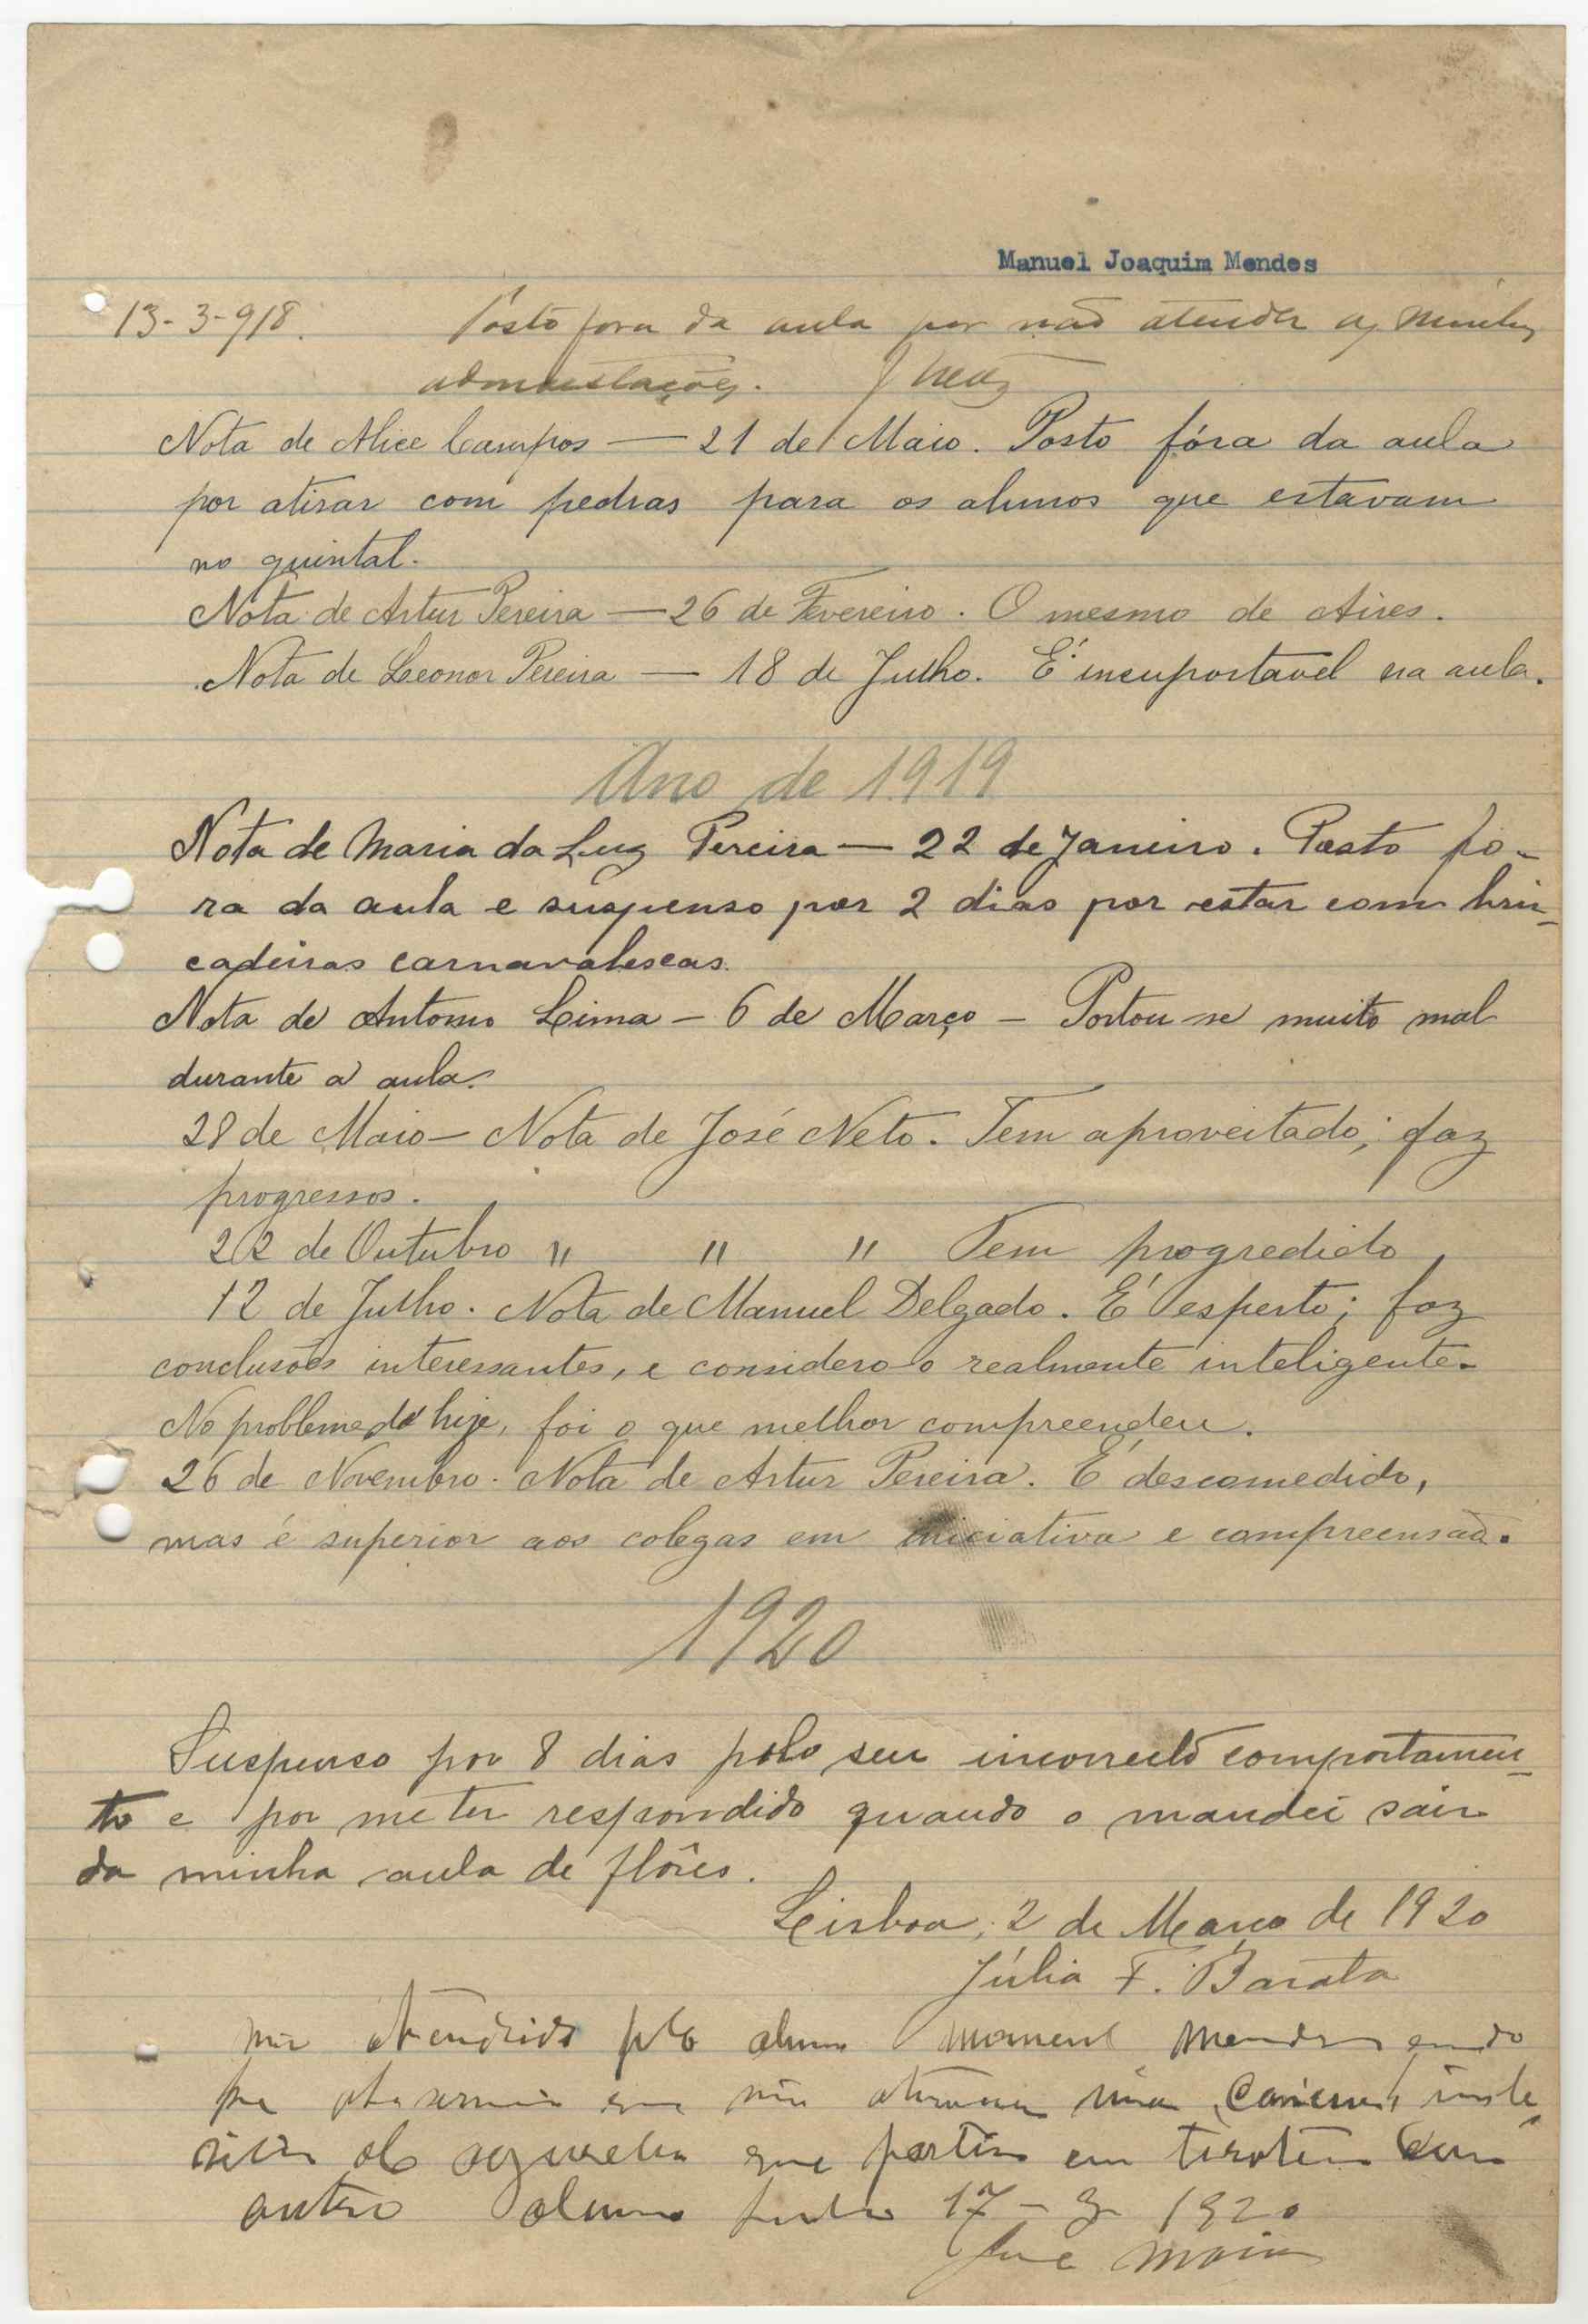 Manuel Joaquim Mendes
13-3-918. Posto fora da aula por não atender as minhas
admoestações.
Nota de Alice Campos — 21 de Maio. Posto fóra da aula
por atirar com pedras para os alunos que estavam
no quintal.
Nota de Artur Pereira — 26 de Fevereiro. O mesmo de Aires.
Nota de Leonor Pereira — 18 de Julho. É insuportavel na aula.
Ano de 1919
Nota de Maria da Luz Pereira — 22 de Janeiro. Posto fo-
ra da aula e suspenso por 2 dias por estar com brin-
cadeiras carnavalescas.
Nota de Antonio Lima — 6 de Março — Portou-se muito mal
durante a aula.
28 de Maio — Nota de José Neto. Tem aproveitado; faz
progressos.
22 de Outubro " " " Tem progredido
12 de Julho. Nota de Manuel Delgado. É esperto; faz
conclusões interessantes, e considero-o realmente inteligente.
No problema de hoje, foi o que melhor compreendeu.
26 de Novembro. Nota de Artur Pereira. É descomedido,
mas é superior aos colegas em iniciativa e compreensão.
1920
Suspenso por 8 dias pelo seu incorrecto comportamen-
to e por me ter respondido quando o mandei sair
da minha aula de flôres.
Lisboa, 2 de Março de 1920
Júlia F. Barata
alumno Manuel Mendes
que não
que partiu em com
outro alumno 17 - 1920